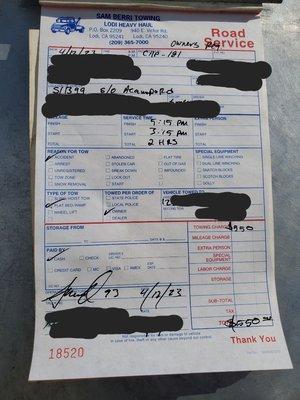 SAM BERRI TOWING
LODI HEAVY HAUL
P.O. Box 2209 940 E. Victor Rd.
Lodi, CA 95241 Lodi, CA 95240
(209) 365-7000
Road Service
4/12/23 CAP-181
S/B99 S/O Acampo Rd
MILEAGE SERVICE TIME EXTRA PERSON
FINISH FINISH 5:15 PM FINISH
START START 3:15 PM START
TOTAL TOTAL 2 HRS TOTAL
REASON FOR TOW SPECIAL EQUIPMENT
ACCIDENT ABANDONED FLAT TIRE SINGLE LINE WINCHING
ARREST STOLEN CAR OUT OF GAS DUAL LINE WINCHING
UNREGISTERED BREAK DOWN IMPOUNDED SNATCH BLOCKS
TOW ZONE LOCK OUT SCOTCH BLOCKS
SNOW REMOVAL START DOLLY
TYPE OF TOW TOWED PER ORDER OF VEHICLE TOWED TO
SLING/HOIST TOW STATE POLICE
FLAT BED/RAMP LOCAL POLICE
WHEEL LIFT OWNER
DEALER
STORAGE FROM TOWING CHARGE $550
MILEAGE CHARGE
TO DATE $
EXTRA PERSON
PAID BY
SPECIAL EQUIPMENT
CASH CHECK
LABOR CHARGE
CREDIT CARD MC VISA AMEX
STORAGE
93 4/12/23
SUB-TOTAL
TAX
TOTAL $550
Not responsible for loss or damage to vehicle
in case of fire, theft or any other cause beyond our control.
18520 Thank You